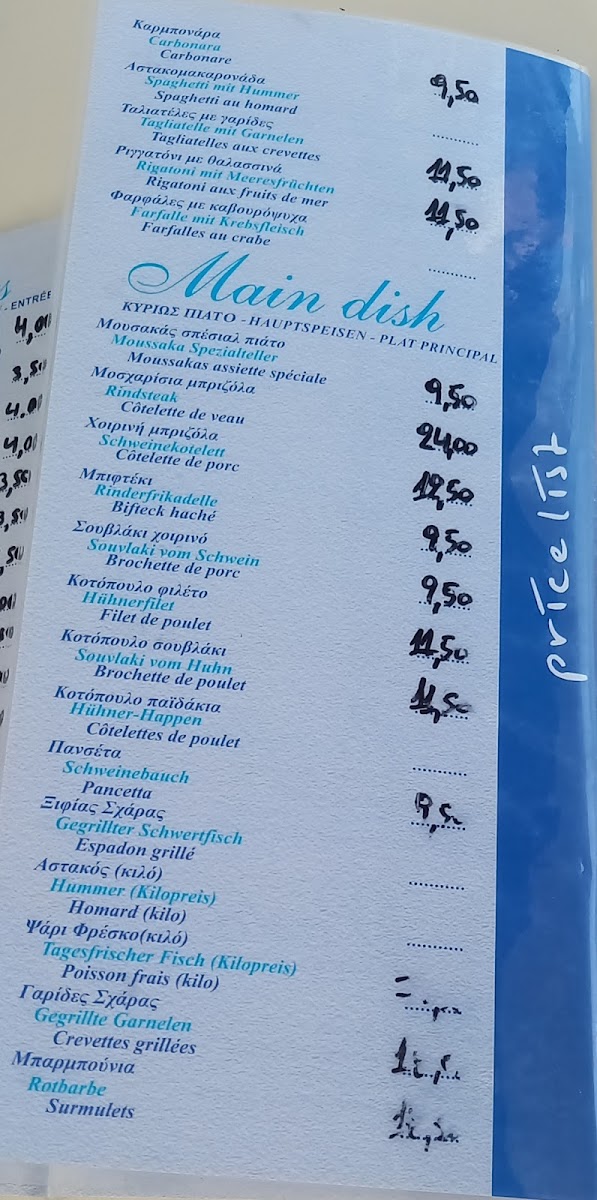 Καρμπονάρα
Carbonara
Carbonare
9,50
Αστακομακαρονάδα
Spaghetti mit Hummer
Spaghetti au homard
Ταλιατέλες με γαρίδες
Tagliatelle mit Garnelen
Tagliatelles aux crevettes
11,50
Ριγγατόνι με θαλασσινά
Rigatoni mit Meeresfrüchten
Rigatoni aux fruits de mer
11,50
Φαρφάλες με καβουρόψυχα
Farfalle mit Krebsfleisch
Farfalles au crabe
Main dish
ΚΥΡΙΩΣ ΠΙΑΤΟ - HAUPTSPEISEN - PLAT PRINCIPAL
Μουσακάς σπέσιαλ πιάτο
Moussaka Spezialteller
Moussakas assiette spéciale
9,50
Μοσχαρίσια μπριζόλα
Rindsteak
Côtelette de veau
24,00
Χοιρινή μπριζόλα
Schweinekotelett
Côtelette de porc
Μπιφτέκι
Rinderfrikadelle
Bifteck haché
9,50
Σουβλάκι χοιρινό
Souvlaki vom Schwein
Brochette de porc
9,50
Κοτόπουλο φιλέτο
Hühnerfilet
Filet de poulet
11,50
Κοτόπουλο σουβλάκι
Souvlaki vom Huhn
Brochette de poulet
11,50
Κοτόπουλο παϊδάκια
Hühner-Happen
Côtelettes de poulet
Πανσέτα
Schweinebauch
Pancetta
Ξιφίας Σχάρας
Gegrillter Schwertfisch
Espadon grillé
Αστακός (κιλό)
Hummer (Kilopreis)
Homard (kilo)
Ψάρι Φρέσκο(κιλό)
Tagesfrischer Fisch (Kilopreis)
Poisson frais (kilo)
Γαρίδες Σχάρας
Gegrillte Garnelen
Crevettes grillées
Μπαρμπούνια
Rotbarbe
Surmulets
price list
- ENTRÉE
4,00
3,50
4,00
4,00
3,50
3,50